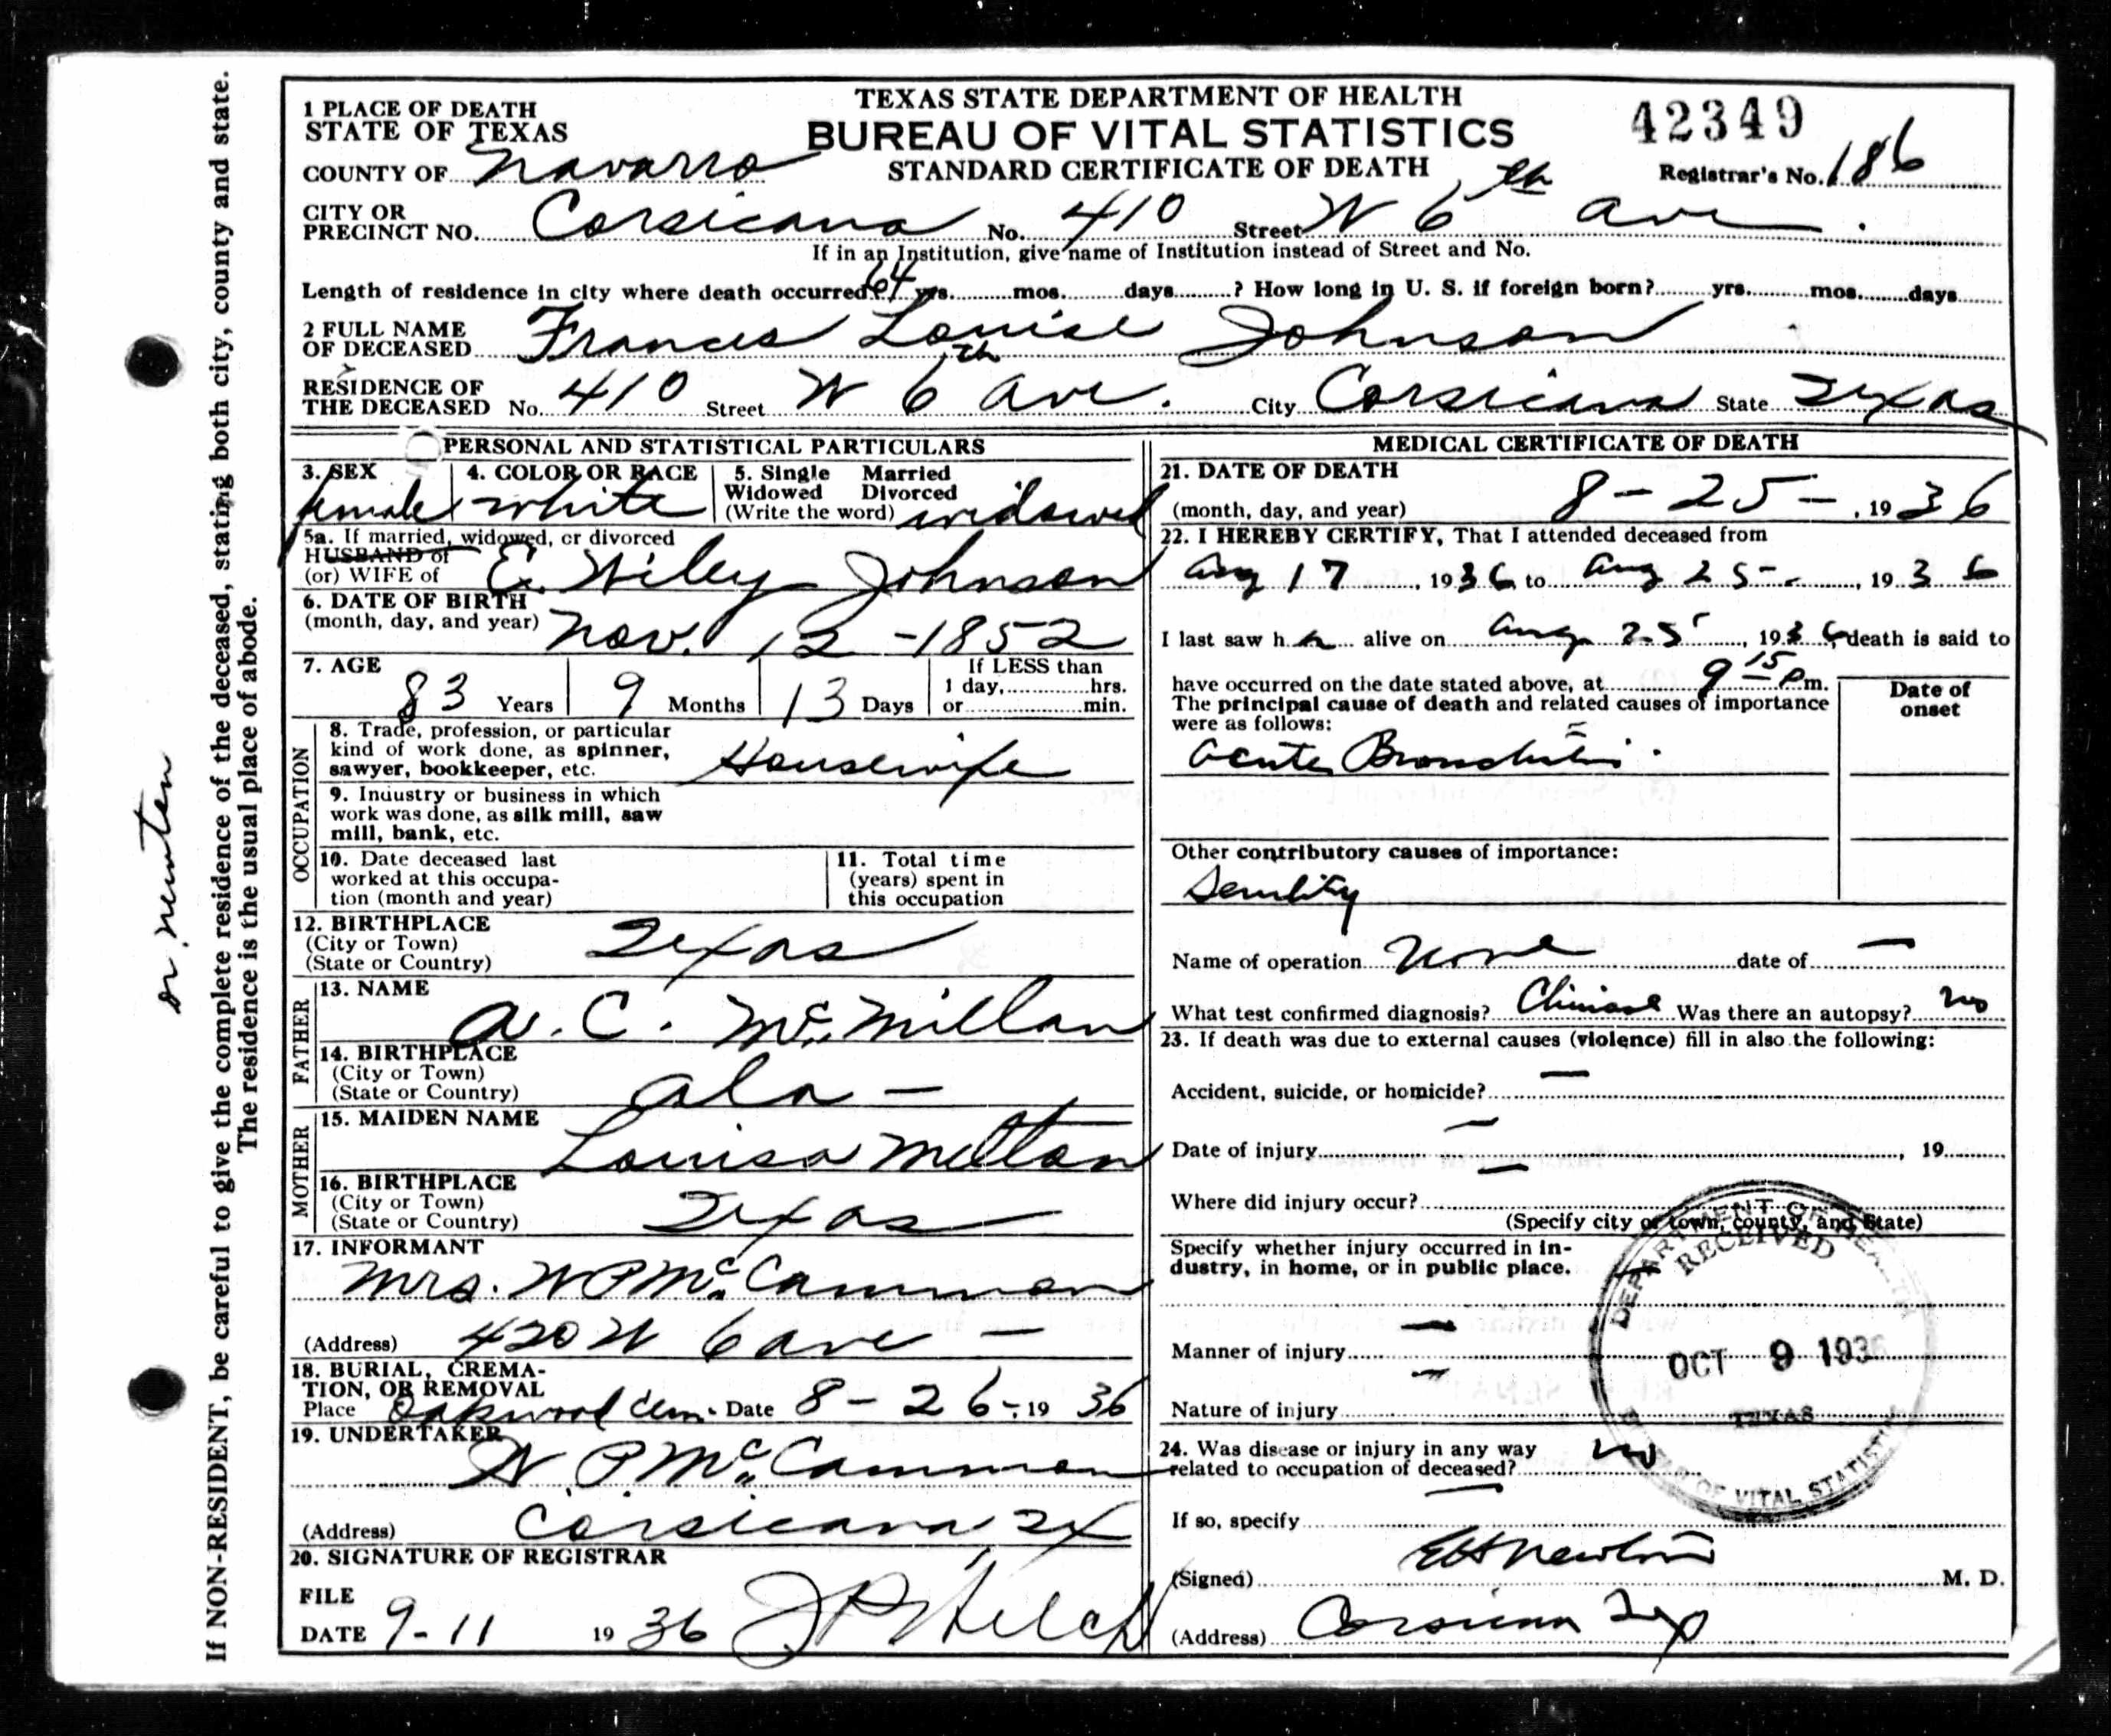 TEXAS STATE DEPARTMENT OF HEALTH
BUREAU OF VITAL STATISTICS
STANDARD CERTIFICATE OF DEATH
42349
Registrar's No. 186
1 PLACE OF DEATH
STATE OF TEXAS
COUNTY OF Navarro
CITY OR PRECINCT NO. Corsicana No. 410 Street W 6th Ave.
If in an Institution, give name of Institution instead of Street and No.
Length of residence in city where death occurred 64 yrs. mos. days ? How long in U. S. if foreign born? yrs. mos. days
2 FULL NAME OF DECEASED Frances Louise Johnson
RESIDENCE OF THE DECEASED No. 410 Street W 6th Ave. City Corsicana State Texas
PERSONAL AND STATISTICAL PARTICULARS
3. SEX female
4. COLOR OR RACE white
5. Single Married
Widowed Divorced
(Write the word) widowed
5a. If married, widowed, or divorced
HUSBAND of
(or) WIFE of E. Wiley Johnson
6. DATE OF BIRTH
(month, day, and year) Nov. 12 - 1852
7. AGE
83 Years 9 Months 13 Days
If LESS than
1 day, hrs.
or min.
OCCUPATION
8. Trade, profession, or particular
kind of work done, as spinner,
sawyer, bookkeeper, etc. Housewife
9. Industry or business in which
work was done, as silk mill, saw
mill, bank, etc.
10. Date deceased last
worked at this occupa-
tion (month and year)
11. Total time
(years) spent in
this occupation
12. BIRTHPLACE
(City or Town)
(State or Country) Texas
FATHER
13. NAME
A. C. McMillan
14. BIRTHPLACE
(City or Town)
(State or Country) Ala -
MOTHER
15. MAIDEN NAME
Louisa Melton
16. BIRTHPLACE
(City or Town)
(State or Country) Texas
17. INFORMANT
Mrs. W P McCammon
(Address) 420 W 6 Ave -
18. BURIAL, CREMA-
TION, OR REMOVAL
Place Oakwood Cem. Date 8 - 26 - 19 36
19. UNDERTAKER
W P McCammon
(Address) Corsicana Tx
20. SIGNATURE OF REGISTRAR
FILE
DATE 9-11 19 36
MEDICAL CERTIFICATE OF DEATH
21. DATE OF DEATH
(month, day, and year) 8 - 25 - , 19 36
22. I HEREBY CERTIFY, That I attended deceased from
Aug 17 , 1936 to Aug 25 - , 19 36
I last saw h er alive on Aug 25 , 1936, death is said to
have occurred on the date stated above, at 9 15 Pm.
The principal cause of death and related causes of importance
were as follows:
Date of
onset
Acute Bronchitis.
Other contributory causes of importance:
Senility
Name of operation None date of —
What test confirmed diagnosis? Clinical Was there an autopsy? no
23. If death was due to external causes (violence) fill in also the following:
Accident, suicide, or homicide? —
Date of injury — , 19
Where did injury occur? —
(Specify city or town, county, and State)
Specify whether injury occurred in in-
dustry, in home, or in public place. —
Manner of injury —
Nature of injury —
24. Was disease or injury in any way
related to occupation of deceased? no
If so, specify —
(Signed) E H Newton M. D.
(Address) Corsicana Tex
DEPARTMENT OF HEALTH
RECEIVED
OCT 9 1936
TEXAS
BUREAU OF VITAL STATISTICS
If NON-RESIDENT, be careful to give the complete residence of the deceased, stating both city, county and state.
The residence is the usual place of abode.